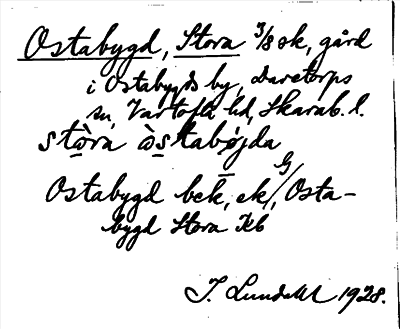 Ostabygd, Stora 3/8 sk, gård
i Ostabygds by, Daretorps
sn, Vartofta hd, Skarab. l.
stòra òstabøjda
Ostabygd bek, ek, Osta-
bygd Stora Kb
J. Lundahl 1928.